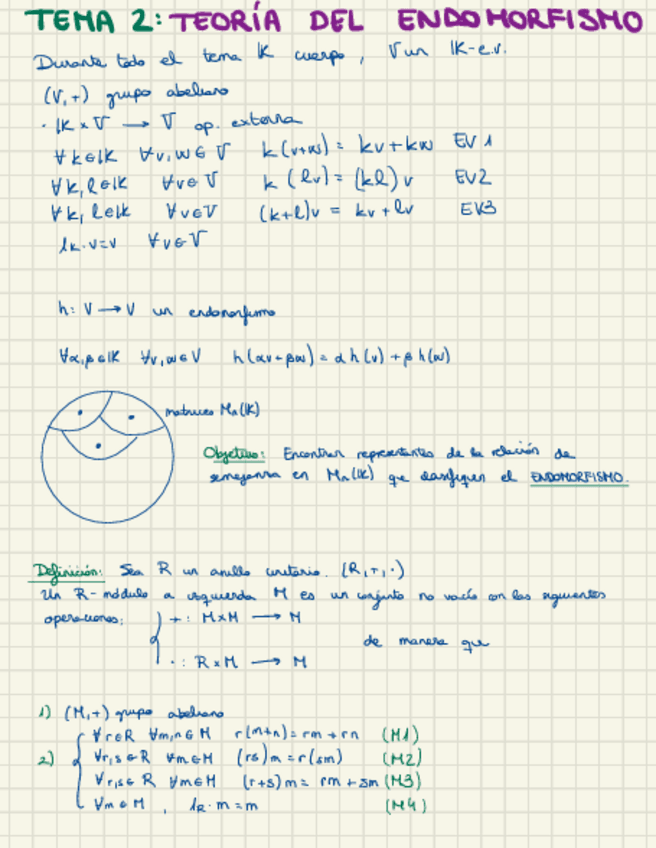 TEMA 2: TEORÍA DEL ENDOMORFISMO
Durante todo el tema K cuerpo, V un K-e.v.
(V,+) grupo abeliano
· K x V → V op. externa
∀k∈K ∀v,w∈V k(v+w) = kv+kw EV1
∀k,l∈K ∀v∈V k(lv) = (kl)v EV2
∀k,l∈K ∀v∈V (k+l)v = kv+lv EV3
1K·v=v ∀v∈V
h: V → V un endomorfismo
∀α,β∈K ∀v,w∈V h(αv+βw) = αh(v)+βh(w)
matrices Mn(K)
Objetivo: Encontrar representantes de la relación de
semejanza en Mn(K) que clasifiquen el ENDOMORFISMO.
Definición: Sea R un anillo unitario. (R,+,·)
Un R-módulo a izquierda M es un conjunto no vacío con las siguientes
operaciones: + : M x M → M
de manera que
· : R x M → M
1) (M,+) grupo abeliano
∀r∈R ∀m,n∈M r(m+n)=rm+rn (M1)
2) ∀r,s∈R ∀m∈M (rs)m=r(sm) (M2)
∀r,s∈R ∀m∈M (r+s)m= rm+sm (M3)
∀m∈M, 1R·m=m (M4)